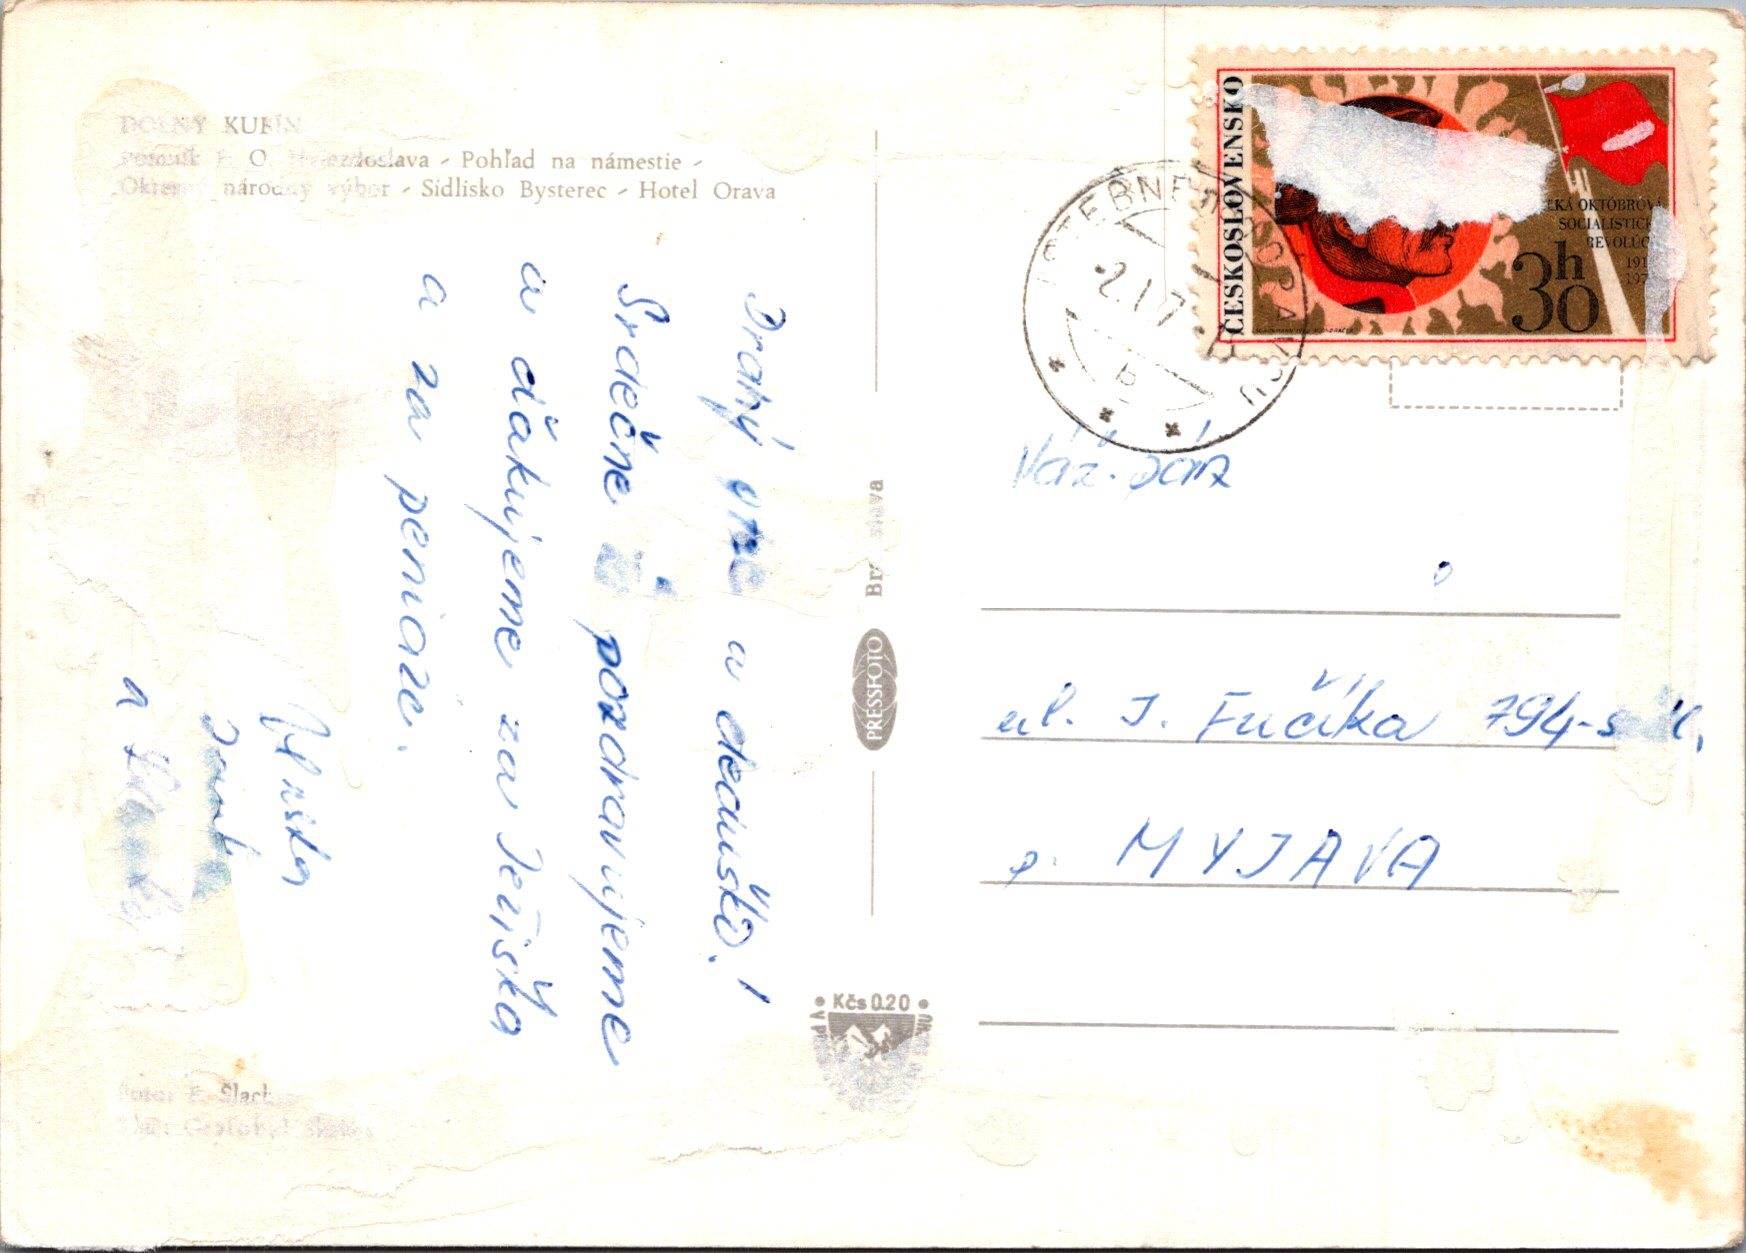 DOLNÝ KUBÍN
Pomník P. O. Hviezdoslava - Pohľad na námestie -
Okresný národný výbor - Sídlisko Bysterec - Hotel Orava
Drahý
a deduško!
Srdečne
pozdravujeme
a ďakujeme za Ježiška
a za peniaze.
a
Foto: E. Šlach
Bratislava
PRESSFOTO
Kčs 0.20
ČESKOSLOVENSKO
OKTÓBROVÁ
SOCIALISTICKÁ
REVOLÚC
30h
ISTEBNÉ
2.1.7
b
Váž. pán
ul. J. Fučíka 794-
p. MYJAVA